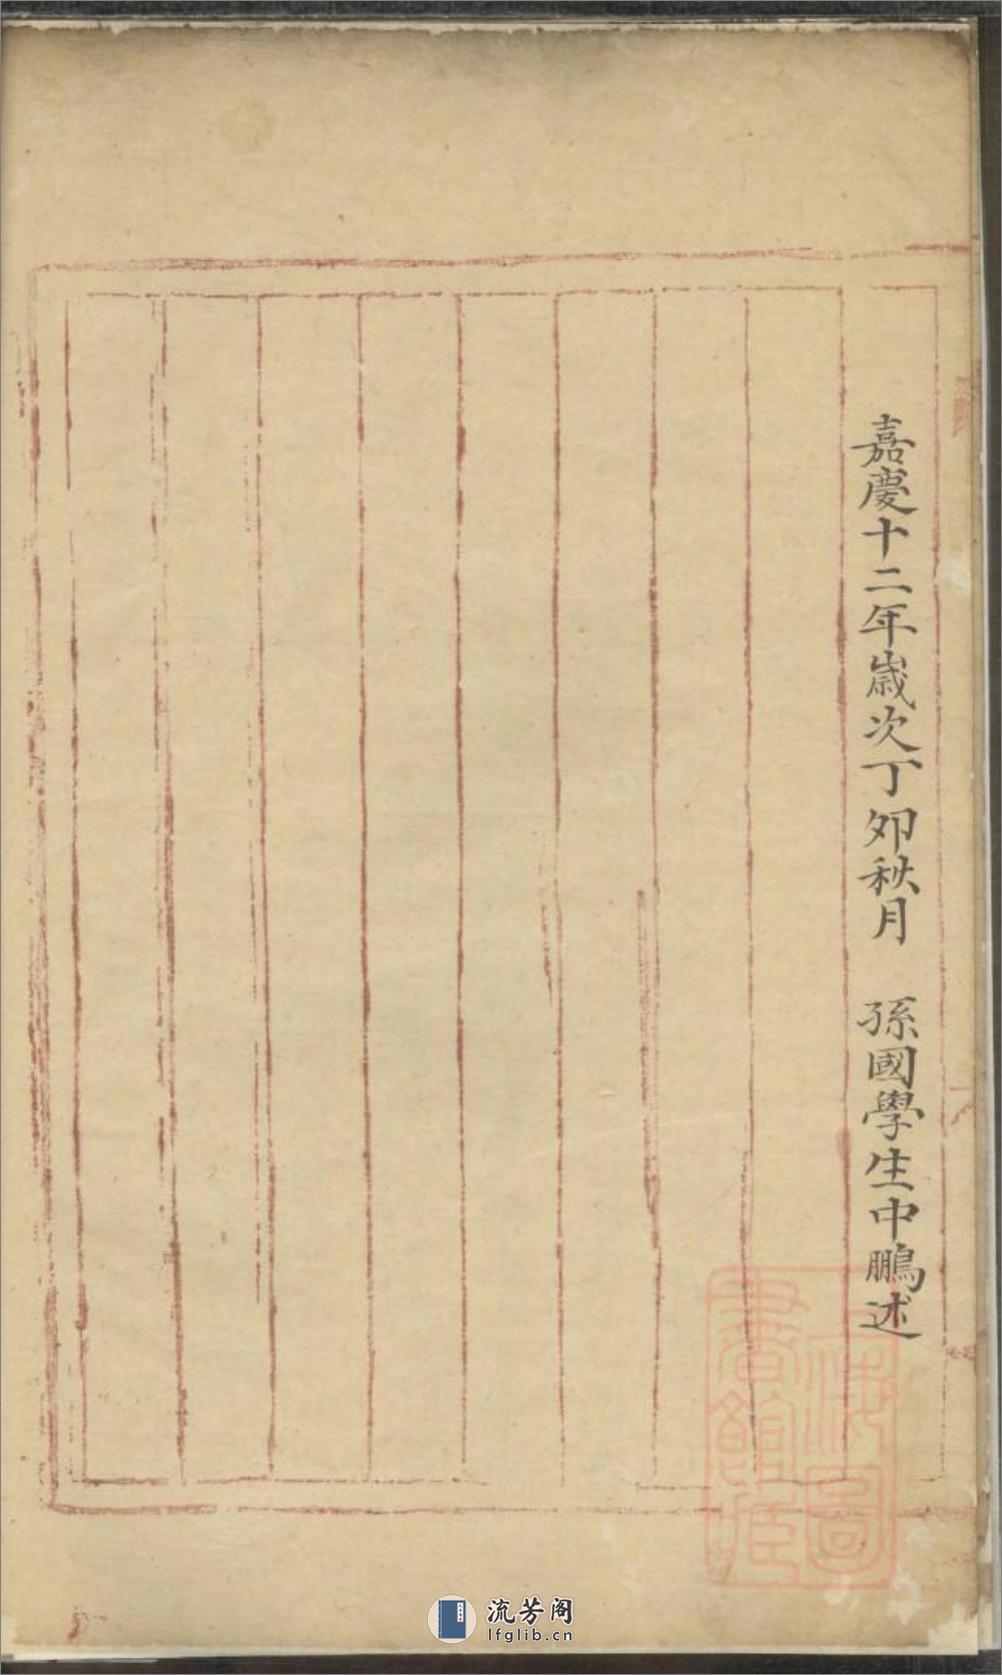 嘉慶十二年歲次丁卯秋月　孫國學生中鵬述
上海圖書館藏
流芳阁
lfglib.cn